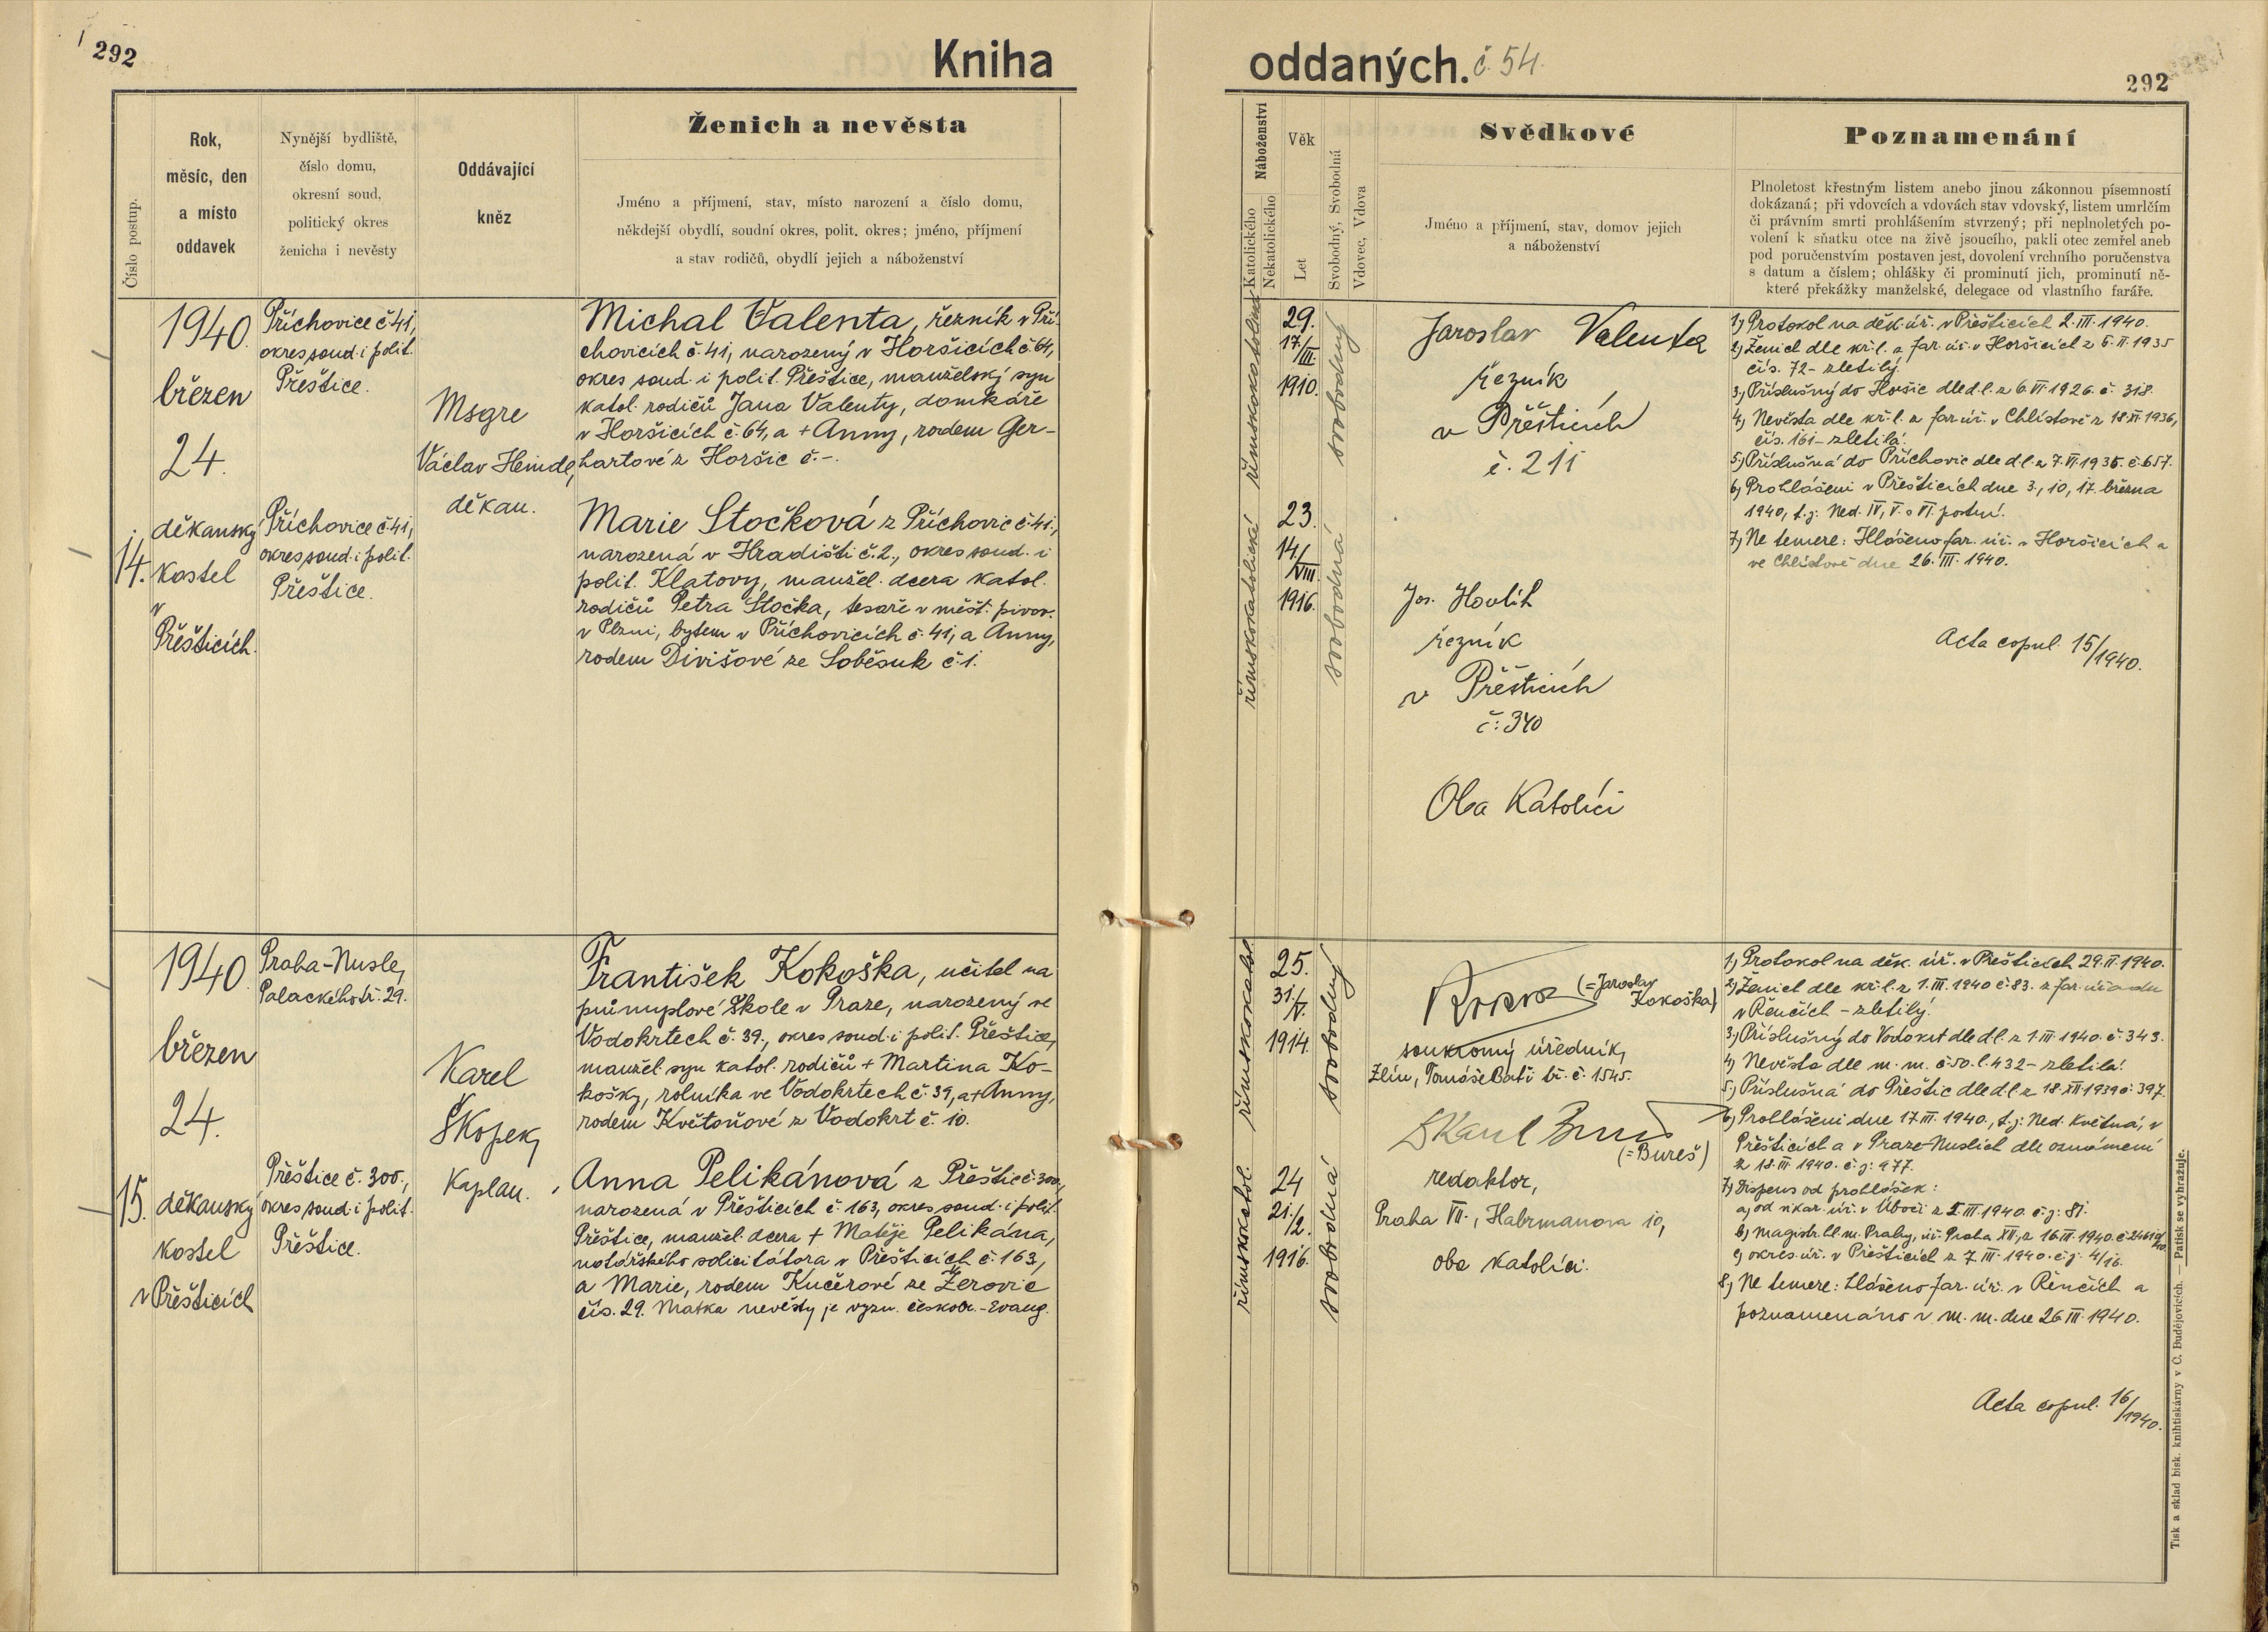 292
Kniha
Číslo postup.
Rok,
měsíc, den
a místo
oddavek
Nynější bydliště,
číslo domu,
okresní soud,
politický okres
ženicha i nevěsty
Oddávající
kněz
Ženich a nevěsta
Jméno a příjmení, stav, místo narození a číslo domu,
někdejší obydlí, soudní okres, polit. okres; jméno, příjmení
a stav rodičů, obydlí jejich a náboženství
14.
1940
březen
24.
děkanský
kostel
v
Přešticích.
Příchovice č. 41,
okres soud. i polit.
Přeštice.
Příchovice č. 41,
okres soud. i polit.
Přeštice.
Msgre
Václav Heindl,
děkan.
Michal Valenta, řezník v Pří-
chovicích č. 41, narozený v Horšicích č. 64,
okres soud. i polit. Přeštice, manželský syn
katol. rodičů Jana Valenty, domkáře
v Horšicích č. 64, a + Anny, rodem Ger-
hartové z Horšic č. -.
Marie Stočková z Příchovic č. 41,
narozená v Hradišti č. 2., okres soud. i
polit. Klatovy, manžel. dcera katol.
rodičů Petra Stočka, tesaře v měšť. pivov.
v Plzni, bytem v Příchovicích č. 41, a Anny,
rodem Divišové ze Soběsuk č. 1.
15.
1940
březen
24.
děkanský
kostel
v Přešticích
Praha-Nusle,
Palackého tř. 29.
Přeštice č. 300.,
okres soud. i polit.
Přeštice.
Karel
Škopek,
Kaplan.
František Kokoška, učitel na
průmyslové škole v Praze, narozený ve
Vodokrtech č. 39., okres soud. i polit. Přeštice,
manžel. syn katol. rodičů + Martina Ko-
košky, rolníka ve Vodokrtech č. 39, a + Anny,
rodem Květoňové z Vodokrt č. 10.
Anna Pelikánová z Přeštic č. 300,
narozená v Přešticích č. 163, okres soud. i polit.
Přeštice, manžel. dcera + Matěje Pelikána,
notářského solicitátora v Přešticích č. 163,
a Marie, rodem Kučerové ze Žerovic
čís. 29. Matka nevěsty je vyzn. českobr.-Evang.
oddaných. č. 54.
292
Náboženství
Katolického
Nekatolického
Věk
Let
Svobodný, Svobodná
Vdovec, Vdova
Svědkové
Jméno a příjmení, stav, domov jejich
a náboženství
Poznamenání
Plnoletost křestným listem anebo jinou zákonnou písemností
dokázaná; při vdovcích a vdovách stav vdovský, listem umrlčím
či právním smrti prohlášením stvrzený; při neplnoletých po-
volení k sňatku otce na živě jsoucího, pakli otec zemřel aneb
pod poručenstvím postaven jest, dovolení vrchního poručenstva
s datum a číslem; ohlášky či prominutí jich, prominutí ně-
které překážky manželské, delegace od vlastního faráře.
římskokatolické
29.
17./III.
1910.
svobodný
římskokatolické
23.
14./VIII.
1916.
svobodná
Jaroslav Valenta
řezník
v Přešticích
č. 211
Jos. Hovlík
řezník
v Přešticích
č. 340
Oba Katolíci
1) Protokol na děk. úř. v Přešticích 2. III. 1940.
2) Ženich dle kř. l. z far. úř. v Horšicích z 5. II. 1935
čís. 72 - zletilý.
3) Příslušný do Horšic dle d. l. z 6. VI. 1926. č. 318.
4) Nevěsta dle kř. l. z far. úř. v Chlistově z 18. XI. 1936,
čís. 161 - zletilá.
5) Příslušná do Příchovic dle d. l. z 7. VI. 1935. č. 657.
6) Prohlášeni v Přešticích dne 3., 10., 17. března
1940, t. j. Ned. IV., V. a VI. postní.
7) Ne temere: Hlášeno far. úř. v Horšicích a
ve Chlistově dne 26. III. 1940.
Acta copul. 15/1940.
římskokatol.
25.
31./V.
1914.
svobodný
římskokatol.
24
21./2.
1916.
svobodná
(= Jaroslav
Kokoška)
soukromý úředník,
Zlín, Tomáše Bati tř. č. 1545.
Karel Bureš
(= Bureš)
redaktor,
Praha VII., Habrmanova 10,
oba katolíci.
1) Protokol na děk. úř. v Přešticích 29. II. 1940.
2) Ženich dle kř. l. z 1. III. 1940 č. 83. z far. úřadu
v Řenčích - zletilý.
3) Příslušný do Vodokrt dle d. l. z 1. III. 1940. č. 343.
4) Nevěsta dle m. m. č. 50. l. 432 - zletilá.
5) Příslušná do Přeštic dle d. l. z 18. XII. 1939 č. 397.
6) Prohlášeni dne 17. III. 1940., t. j. Ned. Květná, v
Přešticích a v Praze-Nuslích dle oznámení
z 18. III. 1940. č. j. 977.
7) Dispens od prohlášek:
a) od vikar. úř. v Úboči z 2. III. 1940. č. j. 81.
b) magistr. hl. m. Prahy, úř. Praha XII, z 16. III. 1940.
c) okres. úř. v Přešticích z 7. III. 1940. č. j. 4/16.
8) Ne temere: hlášeno far. úř. v Řenčích a
poznamenáno v m. m. dne 26. III. 1940.
Acta copul. 16/1940.
Tisk a sklad bisk. knihtiskárny v Č. Budějovicích. — Patisk se vyhražuje.